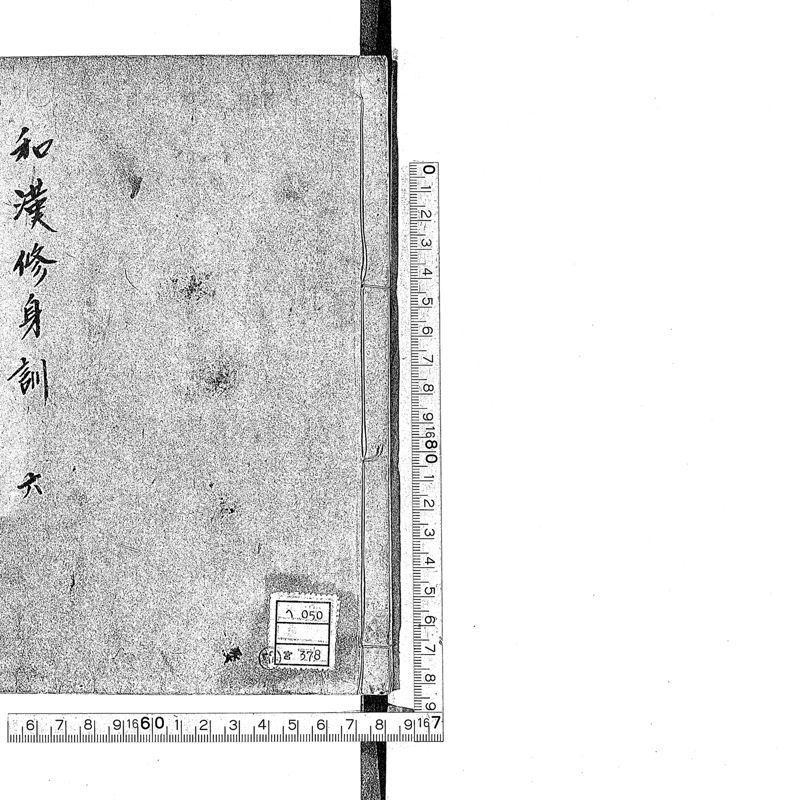 和漢修身訓 六
へ 050
宮 378
0 1 2 3 4 5 6 7 8 9 16 80 1 2 3 4 5 6 7 8 9
6 7 8 9 16 60 1 2 3 4 5 6 7 8 9 16 7